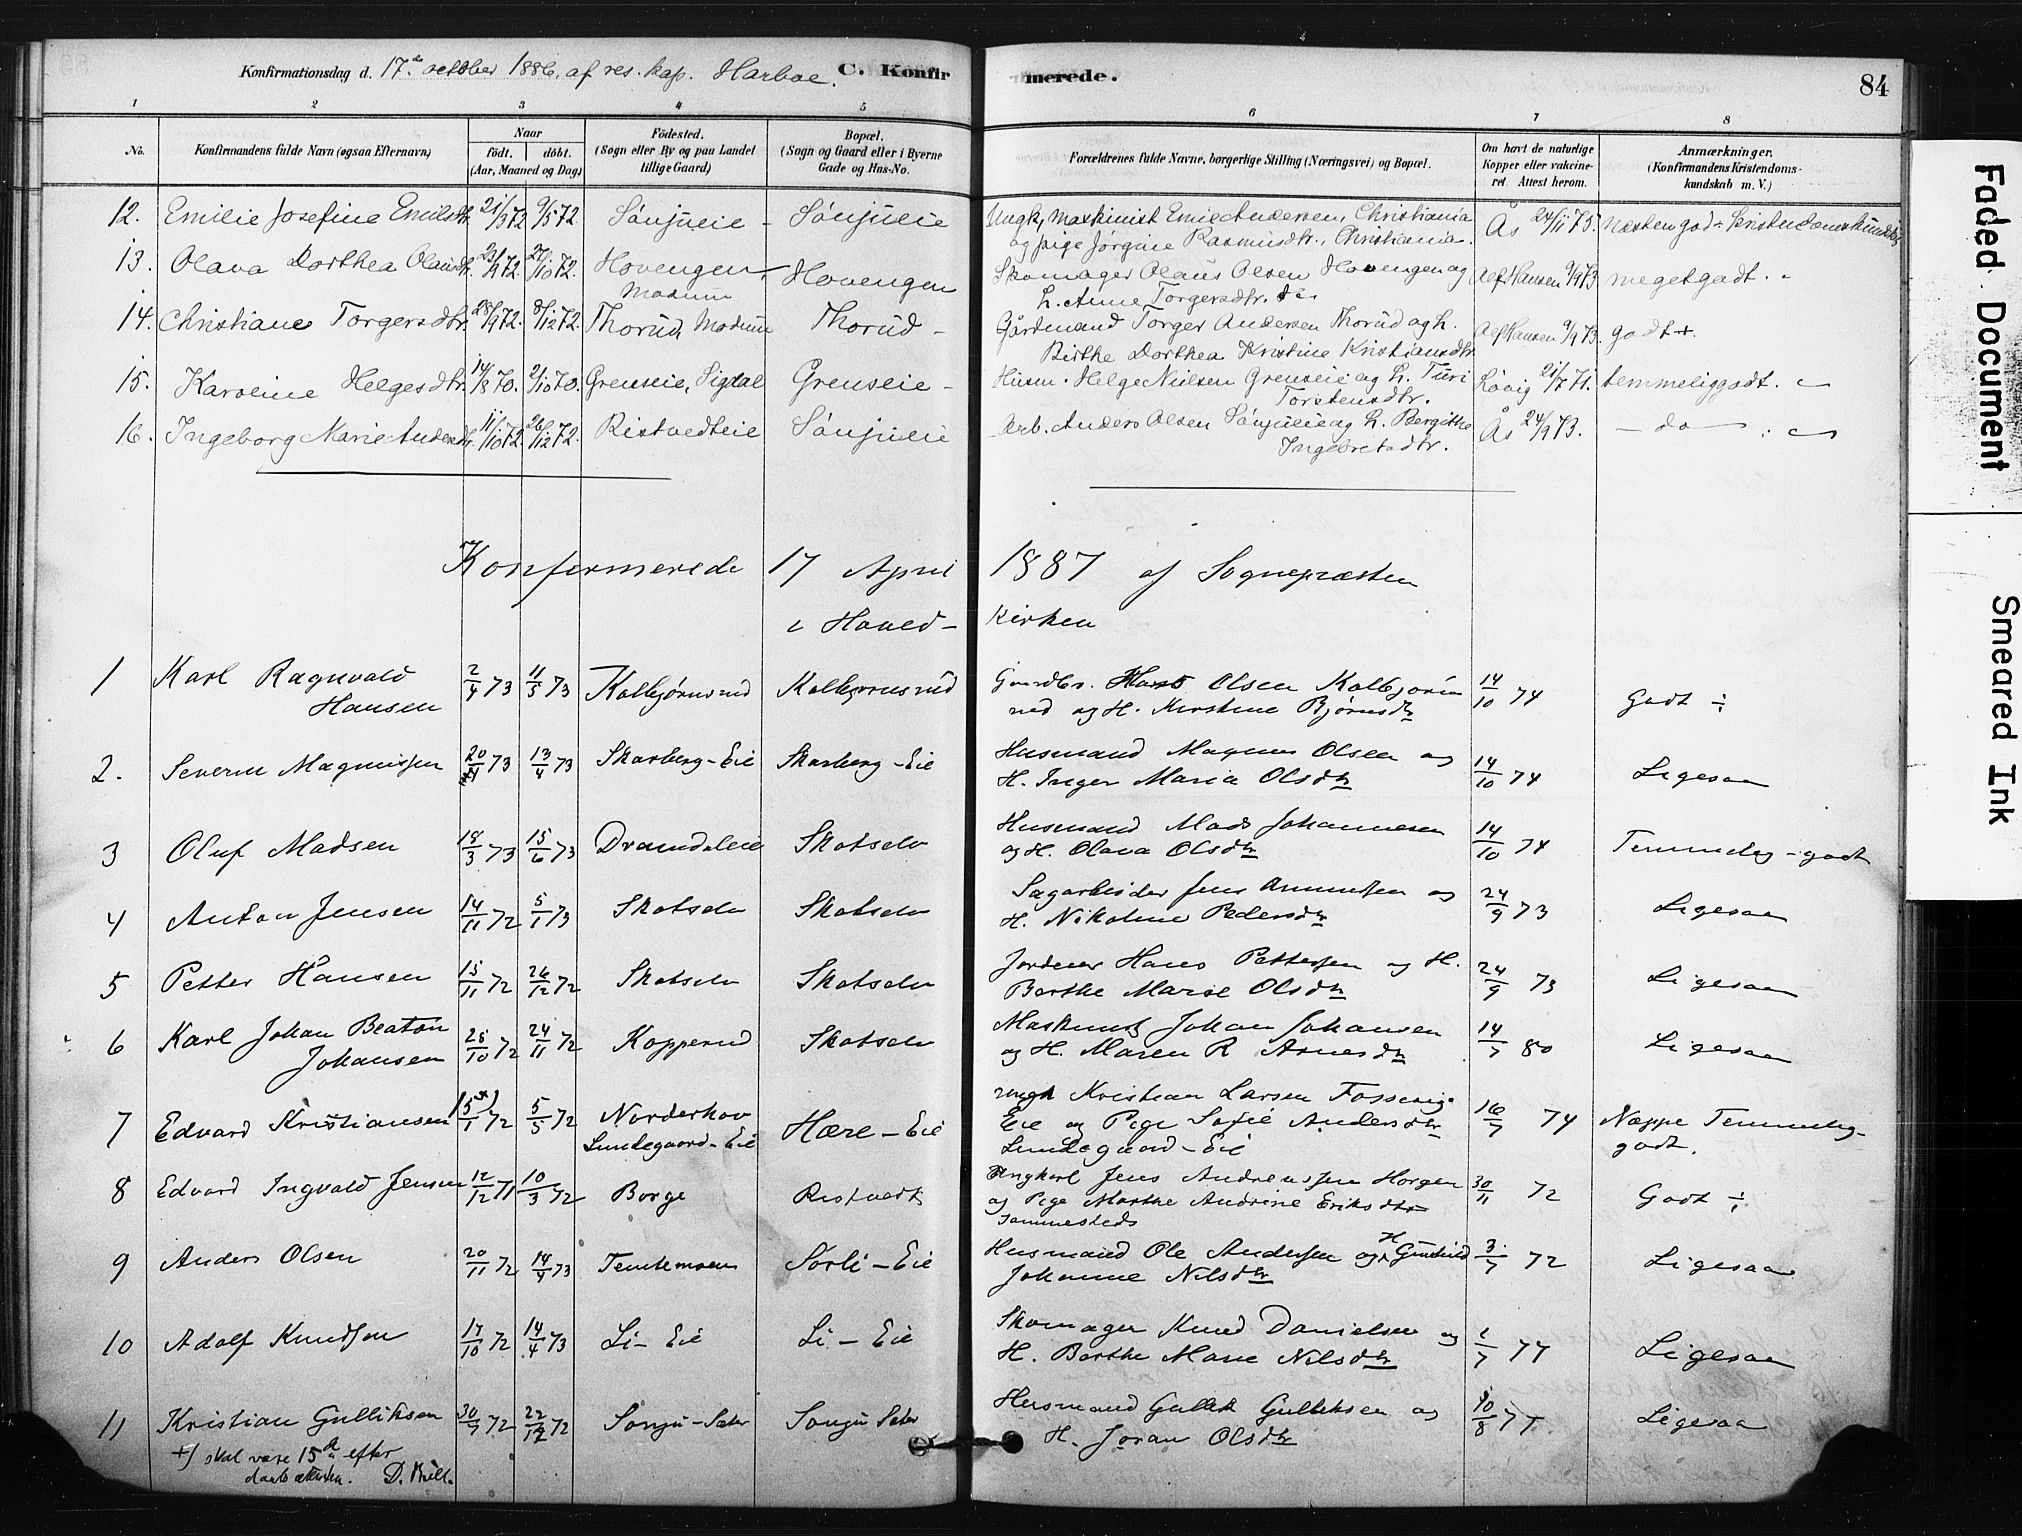 Konfirmationsdag d. 17.de october 1886, af res. kap. Harboe. C. Konfirmerede. 84
1 2 3 4 5 6 7 8
No. Konfirmandens fulde Navn (ogsaa Efternavn) Naar født. døbt. (Aar, Maaned og Dag) Födested. (Sogn eller By og paa Landet tillige Gaard) Bopæl. (Sogn og Gaard eller i Byerne Gade og Hus-No. Forældrenes fulde Navne, borgerlige Stilling (Næringsvei) og Bopæl. Om havt de naturlige Kopper eller vakcineret. Attest herom. Anmærkninger. (Konfirmandens Kristendomskundskab m. V.)
12. Emilie Josefine Emilsdtr. 21/3 72 9/5 72. Sønjueie - Sønjueie Ungk, maskinist Emil Andersen, Christiania Ås 24/11 75. Næsten god Kristendomskundskab
og pige Jørgine Rasmusdtr., Christiania.
13. Olava Dorthea Olausdtr. 72. 27/10 72. Hovengen, Hovengen Skomager Olaus Olsen Hovengen og Alf Hansen 9/9 73. meget godt.
Modum h. Anne Torgersdtr.
14. Christiane Torgersdtr. 28/9 72. 8/12 72. Thorud, Modum Thorud - Gårdmand Torger Andersen Thorud og h. Alf Hansen 9/9 73. godt +.
Birthe Dorthea Kristine Kristiansdtr
15. Karoline Helgesdtr. 14/8 70. 2/10 70. Grenseie, Sigdal Grenseie - Husm. Helge Nielsen Grenseie og h. Turi Løvig 21/7 71. temmelig godt.
Torstensdtr.
16. Ingeborg Marie Andersdtr. 11/10 72. 26/12 72. Ristvedteie Sønjueie Arb. Anders Olsen Sønjueie og h. Bergithe Ås 24/9 73. - do -
Ingebretsdtr.
Konfermerede 17 April 1887 af Sognepræsten
i Hoved- Kirken
1 Karl Ragnvald 2/4 73 11/5 73 Kolbjørnsrud Kolbjørnsrud Gaardbr. Hans Olsen Kolbjørns 14/10 74 Godt ÷
Hansen rud og H. Kirstine Bjørnsdtr
2. Severin Magnussen 20/1 73 13/4 73 Skarberg-Eie Skarberg-Eie Husmand Magnus Olsen og 14/10 74 Ligesaa
H. Inger Maria Olsdtr
3 Oluf Madsen 18/3 73 15/6 73 Dramdaleie Skotselv Husmand Mads Johannesen 14/10 74 Temmelig-godt
og H. Olava Olsdtr
4 Anton Jensen 14/11 72 5/1 73 Skotselv Skotselv Sagarbeider Jens Amundsen og 24/9 73 Ligesaa
H. Nikoline Pedersdtr
5 Petter Hansen 15/11 72 26/12 72 Skotselv Skotselv Hans Pettersen og H. 24/9 73 Ligesaa
Berthe Marie Olsdtr
6 Karl Johan Beaton 25/10 72 24/11 72 Kopperud Skotselv Maskinist Johan Johansen 14/7 80 Ligesaa
Johansen og H. Maren R Arnesdtr
7 Edvard Kristiansen 5/1 72 5/5 72 Norderhov Hære-Eie Ungk Kristian Larsen Fossevig- 16/7 74 Neppe Temmelig-
Lundegaard-Eie Eie og Pige Sofie Andersdtr godt.
Lundegaard-Eie
8 Edvard Ingvald Jensen 12/12 71 10/3 72 Borge Ristvedt Ungkarl Jens Andreassen Horgen 30/11 72 Godt ÷
og Pige Marthe Andrine Eriksdtr
sammesteds
9 Anders Olsen 20/11 72 14/4 73 Sørli-Eie Husmand Ole Andersen og H Gunhild 3/7 72 Ligesaa
Johanne Nilsdtr
10 Adolf Knudsen 17/10 72 14/4 73 Li-Eie Li-Eie Skomager Knud Danielsen og 1/7 77 Ligesaa
H. Berthe Marie Nilsdtr
11 Kristian Gulliksen 30/7 72 22/12 72 Songu-Sæter Songu Sæter Husmand Gullik Gulliksen og 10/8 75 Ligesaa
H. Joran Olsdtr
+) skal være 15de efter
daabsattesten.
Faded Document
Smeared Ink